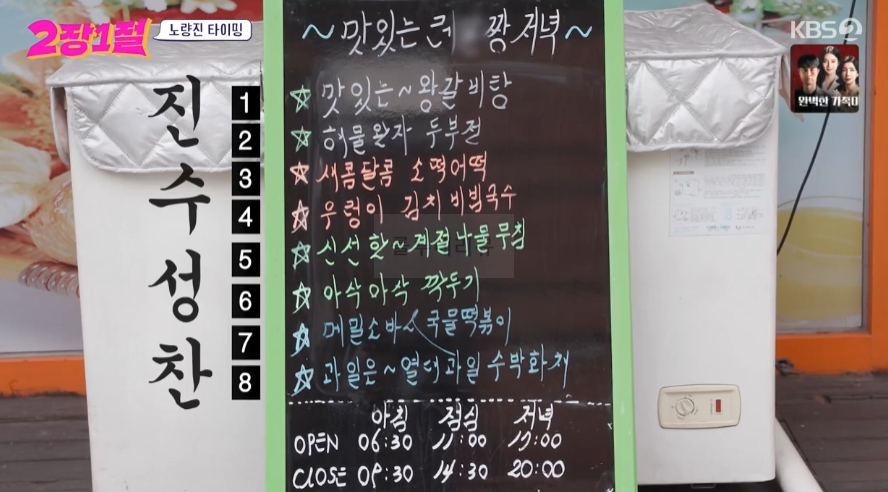 2장1절
노량진 타이밍
KBS2
완벽한 가족
~ 맛있는 코너 짱 저녁 ~
진수성찬
1
2
3
4
5
6
7
8
☆ 맛있는~왕갈비탕
☆ 해물완자 두부전
☆ 새콤달콤 소떡어떡
☆ 우렁이 김치비빔국수
☆ 신선한~계절나물무침
☆ 아삭아삭 깍두기
☆ 메밀소바 국물떡볶이
☆ 과일은~열대과일 수박화채
아침 점심 저녁
OPEN 06:30 11:00 17:00
CLOSE 09:30 14:30 20:00